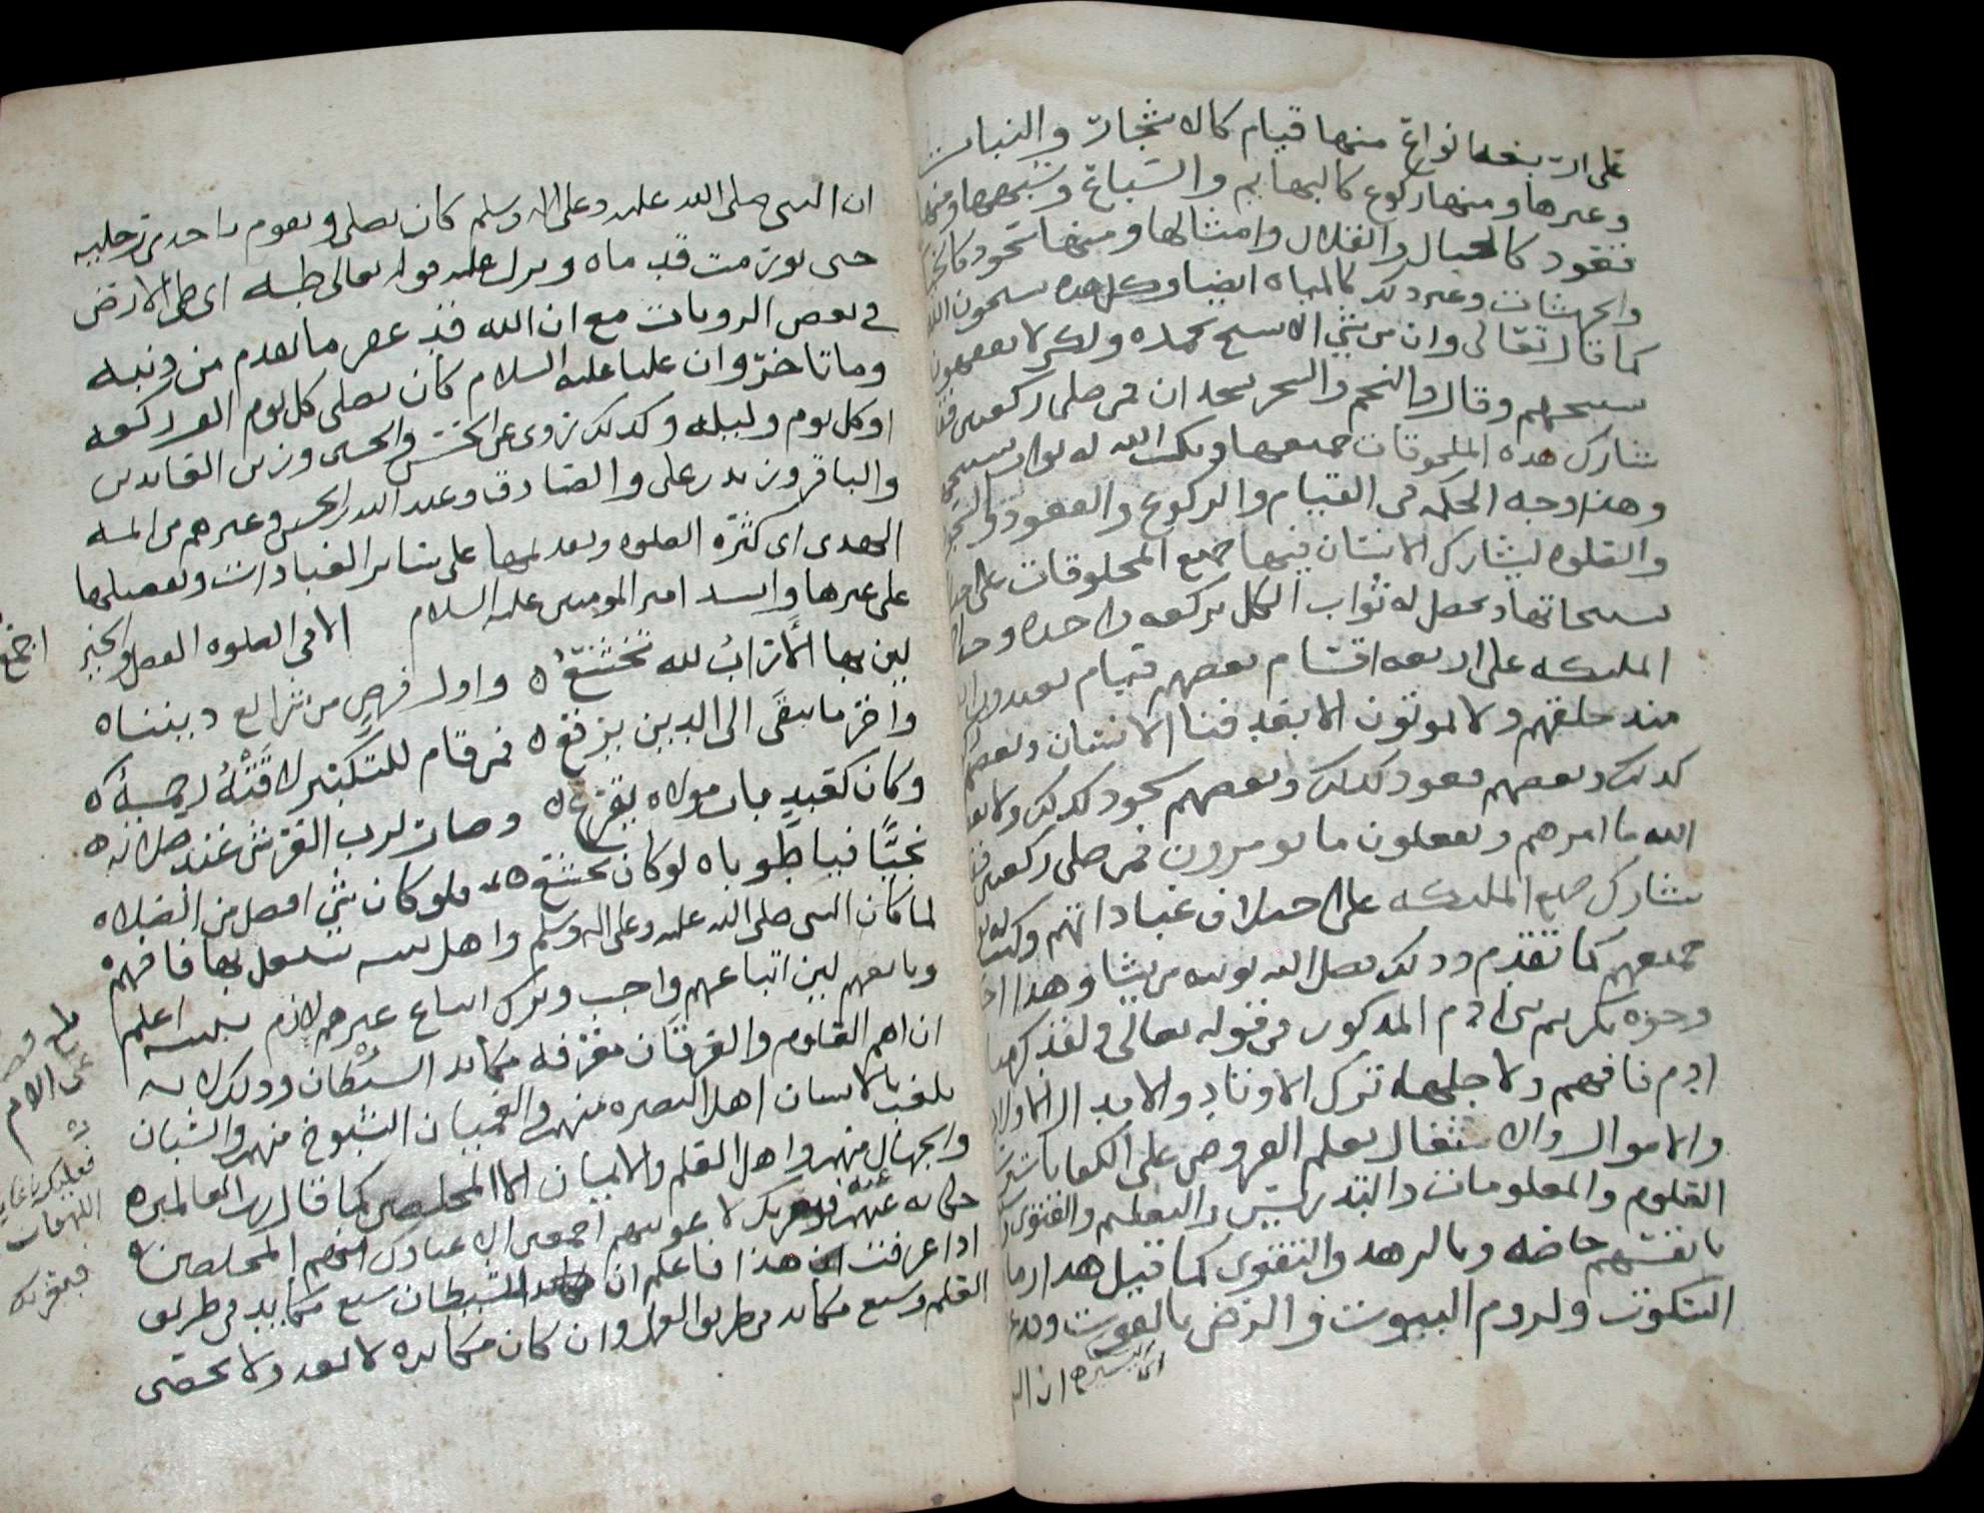 على اربعه انواع منها قيام كالاشجار والنبات
وغيرها ومنها ركوع كالبهايم والسباع وشبهها ومنها
قعود كالجبال والتلال وامثالها ومنها سجود كا
والحشرات وغير ذلك كالمياه ايضا وكل هذه يسبحون الله
كما قال تعالى وان من شي الا يسبح بحمده ولكن لا تفقهون
تسبيحهم وقال والنجم والشجر يسجدان فمن صلى ركعتين فقد
شارك هذه المخلوقات جميعها ويكتب الله له ثواب تسبيح
وهذا وجه الحكمه في القيام والركوع والقعود والسجود
والصلوه ليشارك الانسان فيها جميع المخلوقات على
تسبيحاتها ويحصل له ثواب الكل بركعه واحده و
الملئكه على اربعه اقسام بعضهم قيام يعبدون الله
منذ خلقهم ولا يموتون الا بعد فنا الانسان وبعضهم
كذلك وبعضهم قعود كذلك وبعضهم سجود كذلك ولا
الله ما امرهم ويفعلون ما يومرون فمن صلى ركعتين
شارك جميع الملئكه على اختلاف عباداتهم وكتب له ثواب
جميعهم كما تقدم وذلك فضل الله يوتيه من يشا وهذا احد
وجوه تكريم بني ادم المذكور في قوله تعالى ولقد كرمنا
ادم فافهم ولاجلها ترك الاوتاد والابدال الاولاد
والاموال والاشتغال بعلم الفروض على الكفايات
العلوم والمعلومات والتدريس والتعليم والفتوى
بانفسهم خاصه وبالزهد والتقوى كما قيل هذا زمان
السكوت ولزوم البيوت والرضى بالقوت
ان النبي
ان النبي صلى الله عليه وعلى اله وسلم كان يصلي ويقوم باحدى رجليه
حتى تورمت قدماه ونزل عليه قوله تعالى طه اي طي الارض
في بعض الروبات مع ان الله قد غفر ما تقدم من ذنبه
وما تاخر وان عليا عليه السلام كان يصلي كل يوم الف ركعه
او كل يوم وليله وكذلك روي عن الحسن والحسين وزين العابدين
والباقر وزيد بن علي والصادق وعبد الله بن الحسن وغيرهم من ائمه
الهدى اي كثره الصلوه وتقديمها على سائر العبادات وتفضيلها
على غيرها وانشد امير المومنين عليه السلام الا في الصلوه الفضل والخير اجمع
لين بها الاراب لله تخشع واول فرض من شرايع ديننا
واخر ما يبقى الى الدين يرفع فمن قام للتكبير لاقته رحمة
وكان كعبد باب مولاه يقرع وصار لرب العرش عند صلاته
نجيا فيا طوباه لو كان يخشع فلو كان شي افضل من الصلاه
لما كان النبي صلى الله عليه وعلى اله وسلم واهل بيته يشتغل بها فافهم
وتابعهم لين اتباعهم واجب وترك اتباع غيرهم لازم تنبيه اعلم
ان اهم العلوم والعرفان معرفه مكايد الشيطان وذلك لانه
يلعب بالانسان اهل البصره منهم والعميان الشيوخ منهم والشبان
والجهال منهم واهل العلم والايمان الا المخلصين كما قال رب العالمين
حكايه عنه فبعزتك لاغوينهم اجمعين الا عبادك منهم المخلصين
اذا عرفت هذا فاعلم ان للشيطان سبع مكايد في طريق
العلم وسبع مكايد في طريق العمل وان كان مكايده لا تعد ولا تحصى